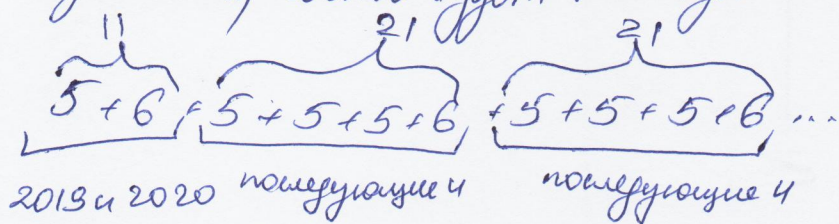 11 21 21
5 + 6 + 5 + 5 + 5 + 6 + 5 + 5 + 5 + 6 ...
2019 и 2020 последующие 4 последующие 4